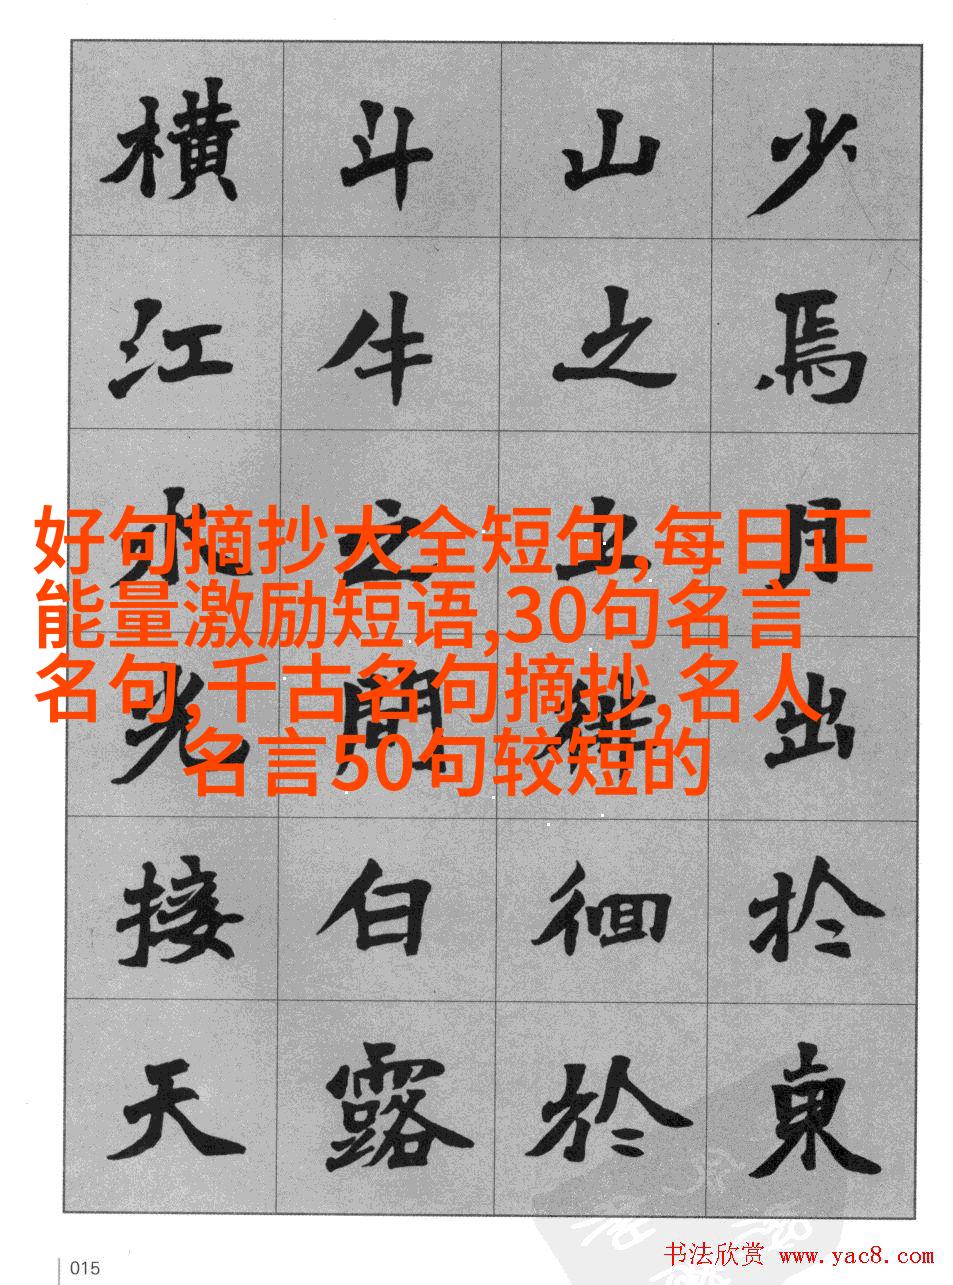 少焉月出於東
山之上徘徊於
斗牛之間白露
横江水光接天
好句摘抄大全短句,每日正
能量激励短语,30句名言
名句,千古名句摘抄,名人
名言50句较短的
015
书法欣赏 www.yac8.com